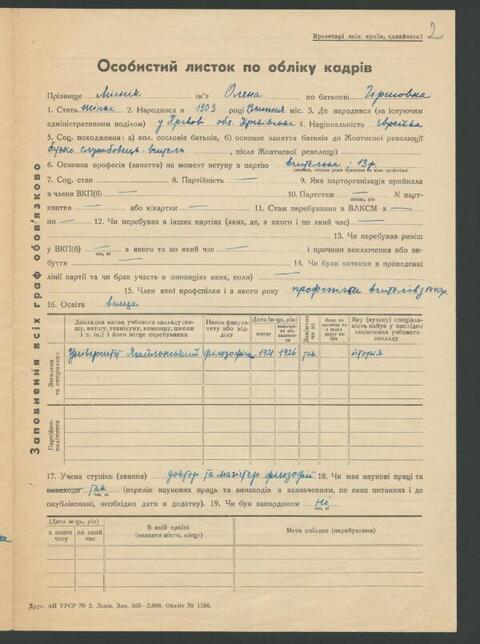 Пролетарі всіх країн, єднайтеся!
2
Особистий листок по обліку кадрів
Прізвище Міхнік ім'я Олена по батькові Гіршовна
1. Стать жінка 2. Народився в 1903 році Січня міс. 3. Де народився (за існуючим
адміністративним поділом) у Кракові 4. Національність Єврейка
5. Соц. походження: а) кол. сословіє батьків, б) основне заняття батьків до Жовтневої революції
службовець-вчитель, після Жовтневої революції
6. Основна професія (заняття) на момент вступу в партію вчителька і 13 р.
7. Соц. стан — 8. Партійність — 9. Яка парторганізація прийняла
в члени ВКП(б) — 10. Партстаж — № парт-
квитка — або к/картки — 11. Стаж перебування в ВЛКСМ з —
по — 12. Чи перебував в інших партіях (яких, де, з якого і по який час) —
13. Чи перебував раніш
у ВКП(б) — з якого та по який час — і причини виключення або ви-
буття — 14. Чи були вагання в проведенні
лінії партії та чи брав участь в опозиціях яких, коли) —
15. Член якої профспілки і з якого року профспілки вчителів з 1940 р.
16. Освіта вища
Заповнення всіх граф обов'язково
Докладна назва учбового закладу (вищу, технікуму, комвищу, школи і т. ін.) і його місце перебування
Назва факультету або відділу
Дата (м-ць, рік)
вступу
Закінчив чи ні
Яку (вузьку) спеціальність набув у наслідок закінчення учбового закладу
Загальна та спеціальна
Університет Ягайлонський філософічн. 1921 1926 так — історія
Партійно-політична
17. Учена ступінь (звання) доктор та магістер філософії 18. Чи має наукові праці та
винаходи так (перелік наукових праць та винаходів з зазначенням, по яких питання і де
опубліковані, необхідно дата в додатку). 19. Чи був закордоном Ні
так, ні
Дата (м-ць, рік)
з якого часу
по який час
В якій країні
(вказати місто, місце)
Мета поїздки (перебування)
Друк. АН УРСР № 2. Львів. Зам. 368—2.000. Обліт № 1186.